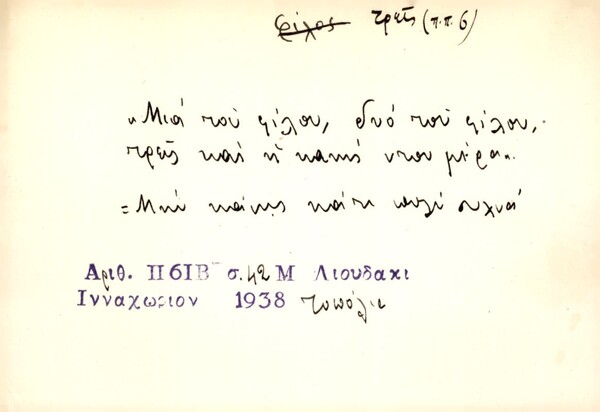 φίλος τρεῖς (π.π. 6)
«Μιά τοῦ φίλου, δυό τοῦ φίλου,
τρεῖς καί ἡ κακής ντου μέρα».
= Μήν κάνῃς κάτι πολύ συχνά
Αριθ. Π61Β σ. 42 Μ Λιουδακι
Ινναχωριον 1938 Τοπόλια